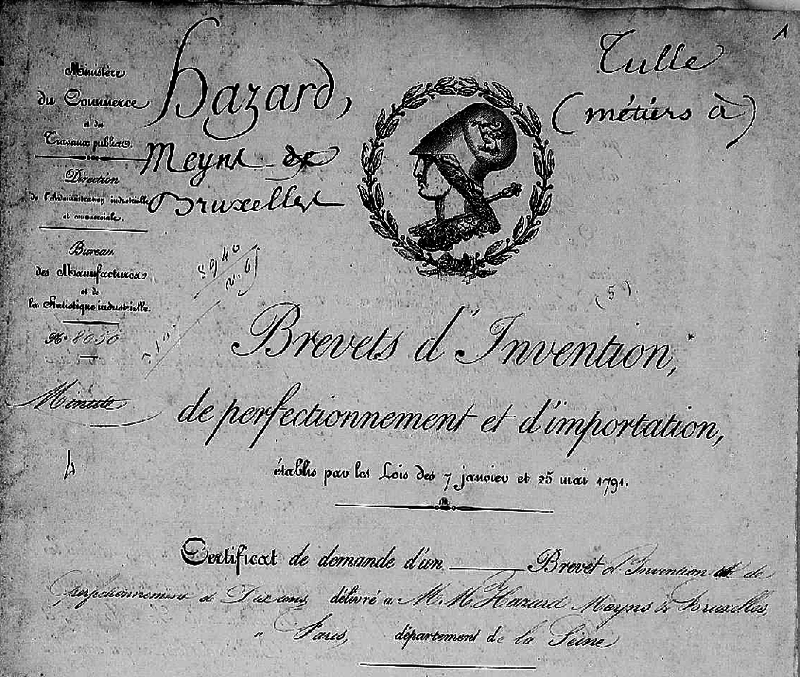 Ministère
du Commerce
et des
Travaux publics.
Direction
de l'Administration industrielle
et commerciale.
Bureau
des Manufactures
et de
la Statistique industrielle.
No. 8050
Minute
Hazard,
Meyns de
Bruxelles
Tulle
(métiers à)
1
8940
(5)
Brevets d'Invention,
de perfectionnement et d'importation,
établis par les Lois des 7 janvier et 25 mai 1791.
Certificat de demande d'un Brevet d'Invention et de
perfectionnement de Dix ans, délivré à M.M. Hazard Meyns de Bruxelles,
à Paris, département de la Seine